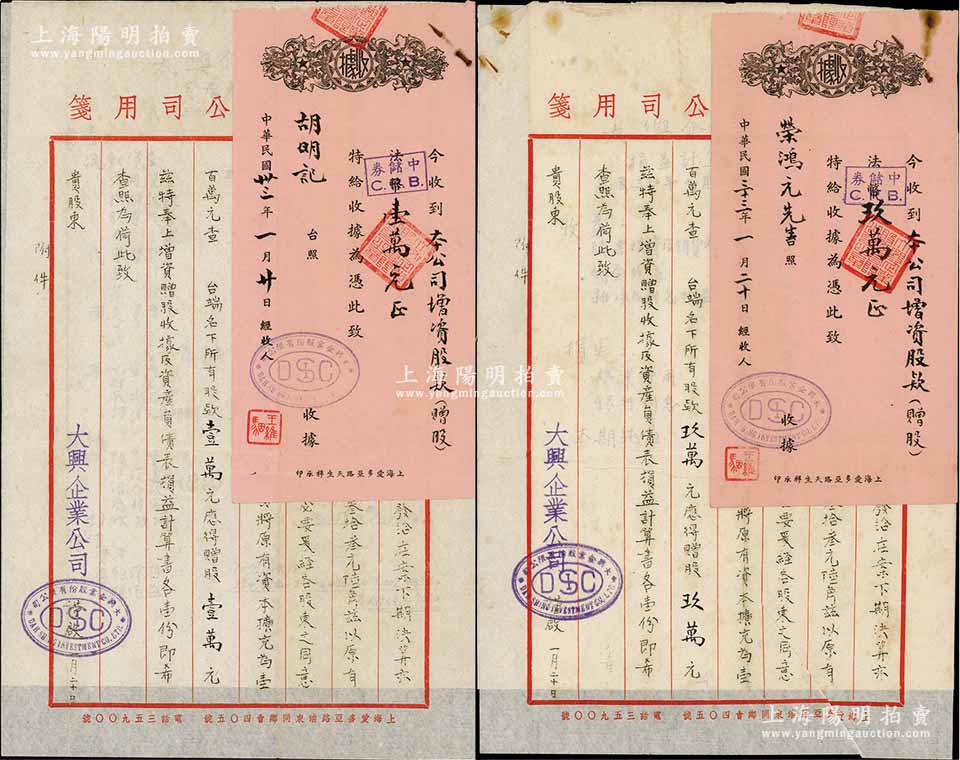 上海陽明拍賣
www.yangmingauction.com
收據
今收到 本公司增資股款（贈股）
法幣壹萬元正
中儲券
C. B.
特給收據為憑此致
胡明記 台照
中華民國卅三年一月廿日 經收人
收據
上海愛多亞路天生祥承印
公司用箋
發給在案下期決算亦
叁拾叁元陸角茲以原有
必要爰經各股東之同意
將原有資本擴充為壹
百萬元查 台端名下所有股款壹萬元應得贈股壹萬元
茲特奉上增資贈股收據及資產負債表損益計算書各壹份即希
查照為荷此致
貴股東
附件
大興企業公司
啟 一月二十日
大興企業股份有限公司
DSC
DAH SHING INVESTMENT CO., LTD.
上海愛多亞路浦東同鄉會四〇五號 電話三五九〇〇號
上海陽明拍賣
www.yangmingauction.com
收據
今收到 本公司增資股款（贈股）
法幣玖萬元正
中儲券
C. B.
特給收據為憑此致
榮鴻元先生 台照
中華民國三十三年一月二十日 經收人
收據
上海愛多亞路天生祥承印
公司用箋
發給在案下期決算亦
叁拾叁元陸角茲以原有
要爰經各股東之同意
將原有資本擴充為壹
百萬元查 台端名下所有股款玖萬元應得贈股玖萬元
茲特奉上增資贈股收據及資產負債表損益計算書各壹份即希
查照為荷此致
貴股東
附件
大興企業公司
啟 一月二十日
大興企業股份有限公司
DSC
DAH SHING INVESTMENT CO., LTD.
上海愛多亞路浦東同鄉會四〇五號 電話三五九〇〇號
上海陽明拍賣
www.yangmingauction.com
上海陽明拍賣
www.yangmingauction.com